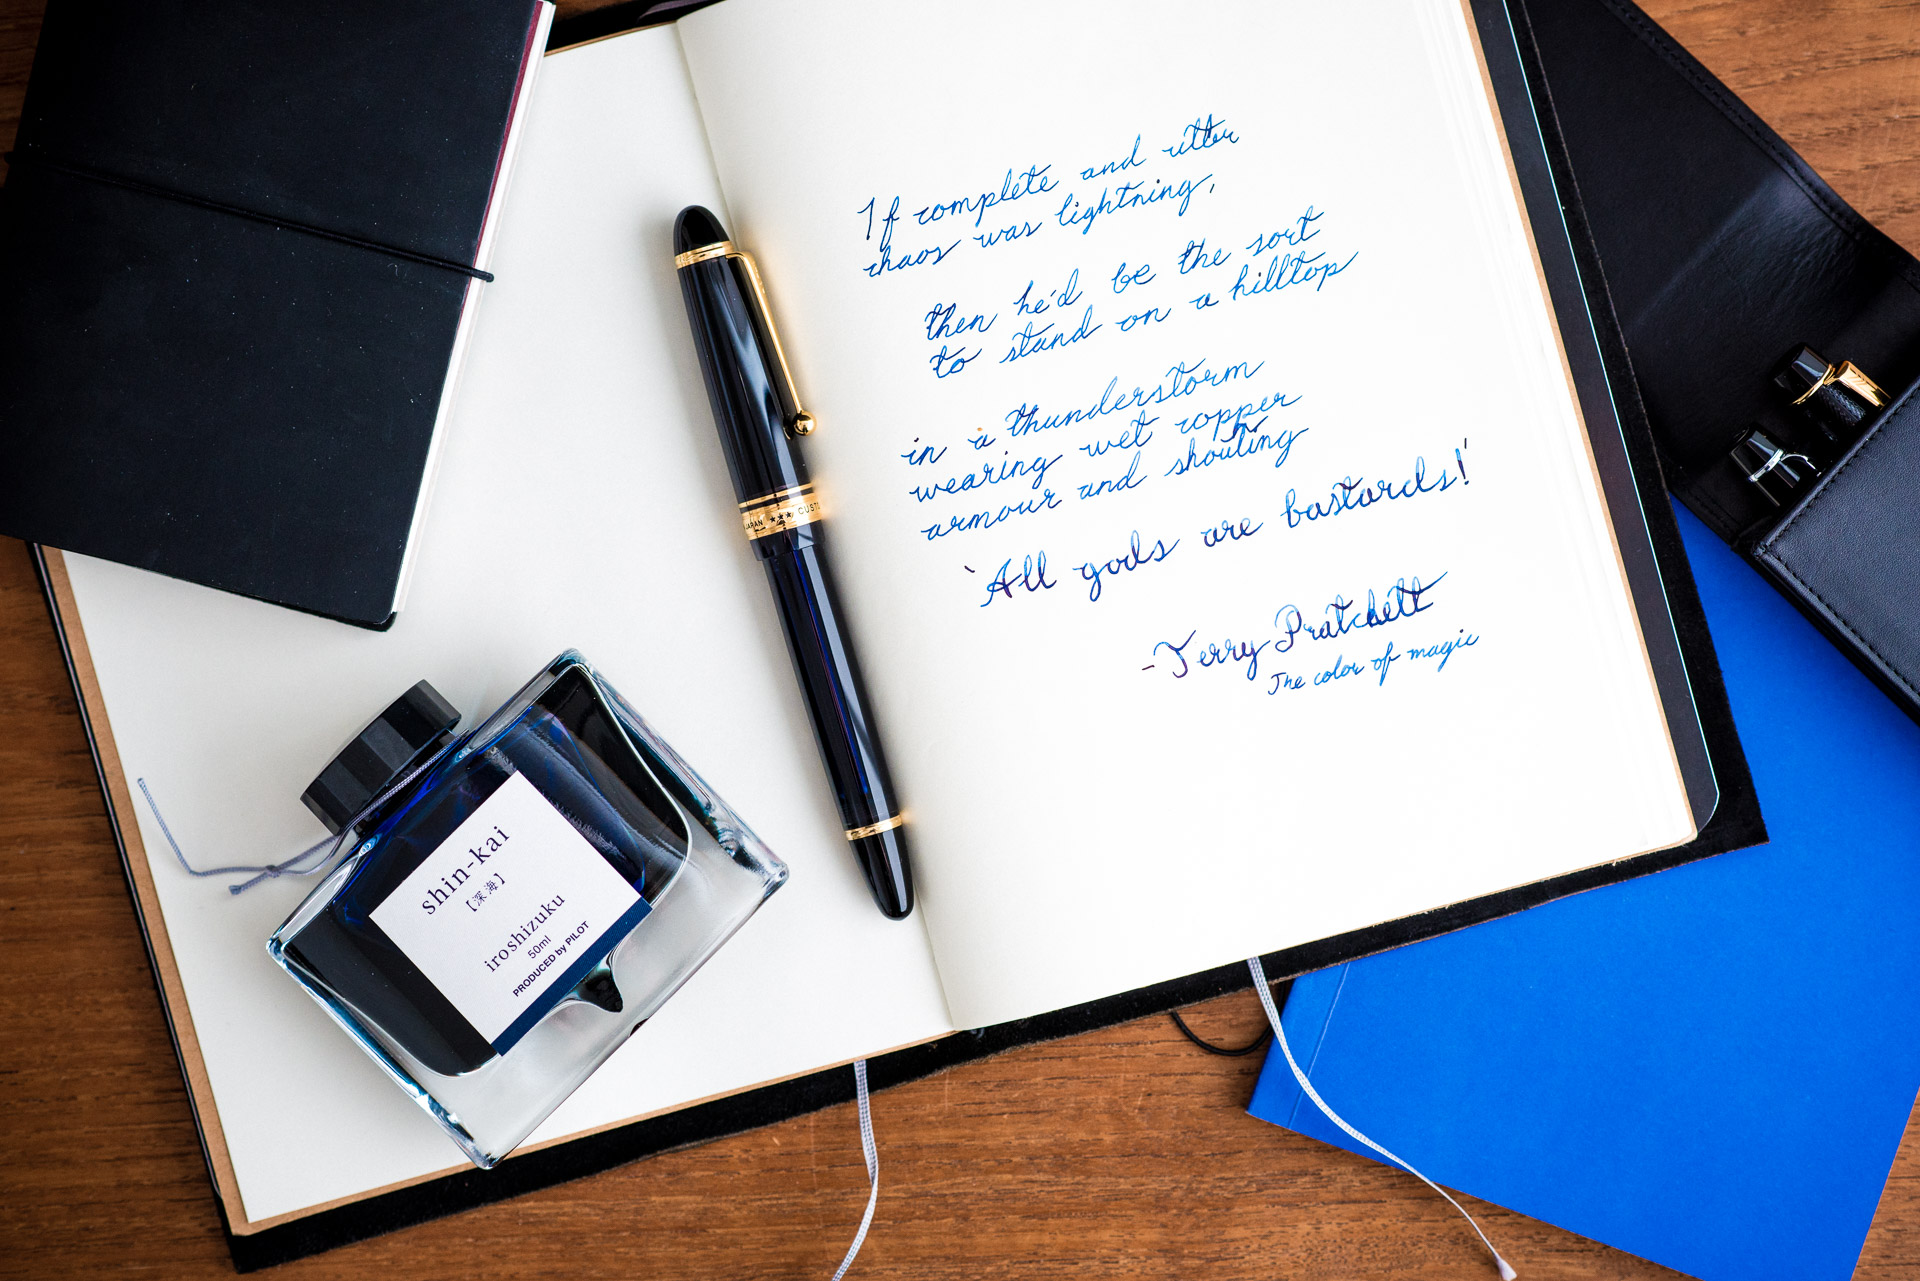 If complete and utter
chaos was lightning,
then he'd be the sort
to stand on a hilltop
in a thunderstorm
wearing wet copper
armour and shouting
'All gods are bastards!
-Terry Pratchett
The color of magic
JAPAN ★★★ CUSTO
shin-kai
【深海】
iroshizuku
50ml
PRODUCED by PILOT